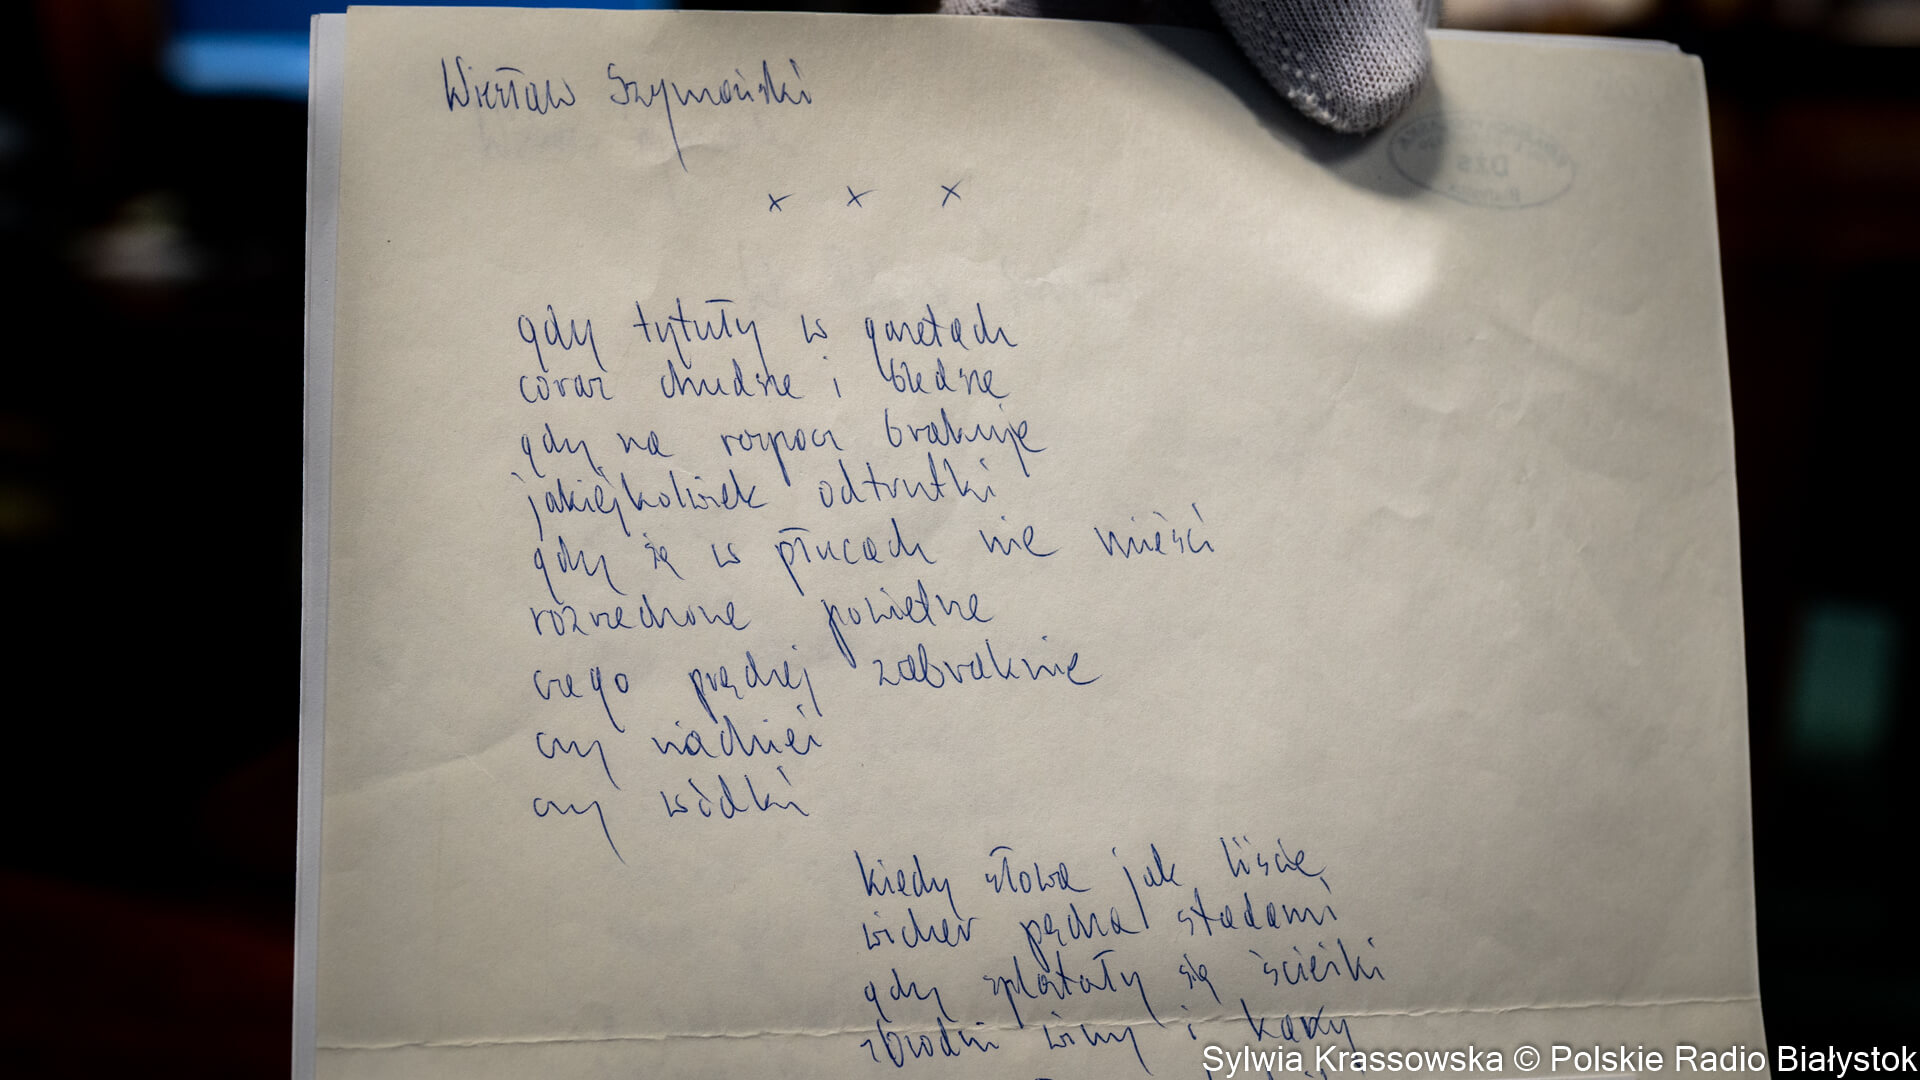 Wiesław Szymański
x x x
gdy tytuły w gazetach
coraz chudsze i bledsze
gdy na rozpacz brakuje
jakiejkolwiek odtrutki
gdy się w płucach nie mieści
rozrzedzone powietrze
czego prędzej zabraknie
czy nadziei
czy wódki
kiedy słowa jak liście
wicher pędza stadami
gdy splatały się ścieżki
zbrodni winy i kary
DZS
Sylwia Krassowska © Polskie Radio Białystok